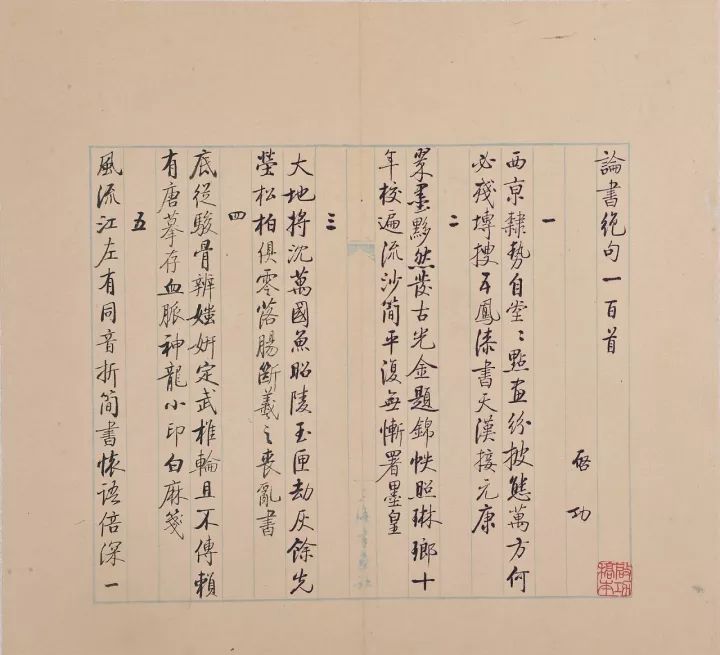 論書絶句一百首
啓功
一
西京隸勢自堂〻點畫紛披態萬方何
必殘塼搜五鳳漆書天漢接元康
二
翠墨黟然發古光金題錦帙照琳瑯十
年校遍流沙簡平復無慚署墨皇
三
大地將沈萬國魚昭陵玉匣劫灰餘先
塋松柏俱零落腸斷羲之喪亂書
四
底從駿骨辨媸妍定武椎輪且不傳賴
有唐摹存血脈神龍小印白麻箋
五
風流江左有同音折簡書懷語倍深一